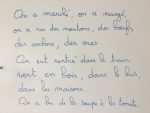 On a marché, on a mangé,
on a vu des moutons, des bœufs,
des cochons, des oies.
On est rentré dans le train
vert en bois, dans le bus,
dans les maisons.
On a bu de la soupe à la tomate